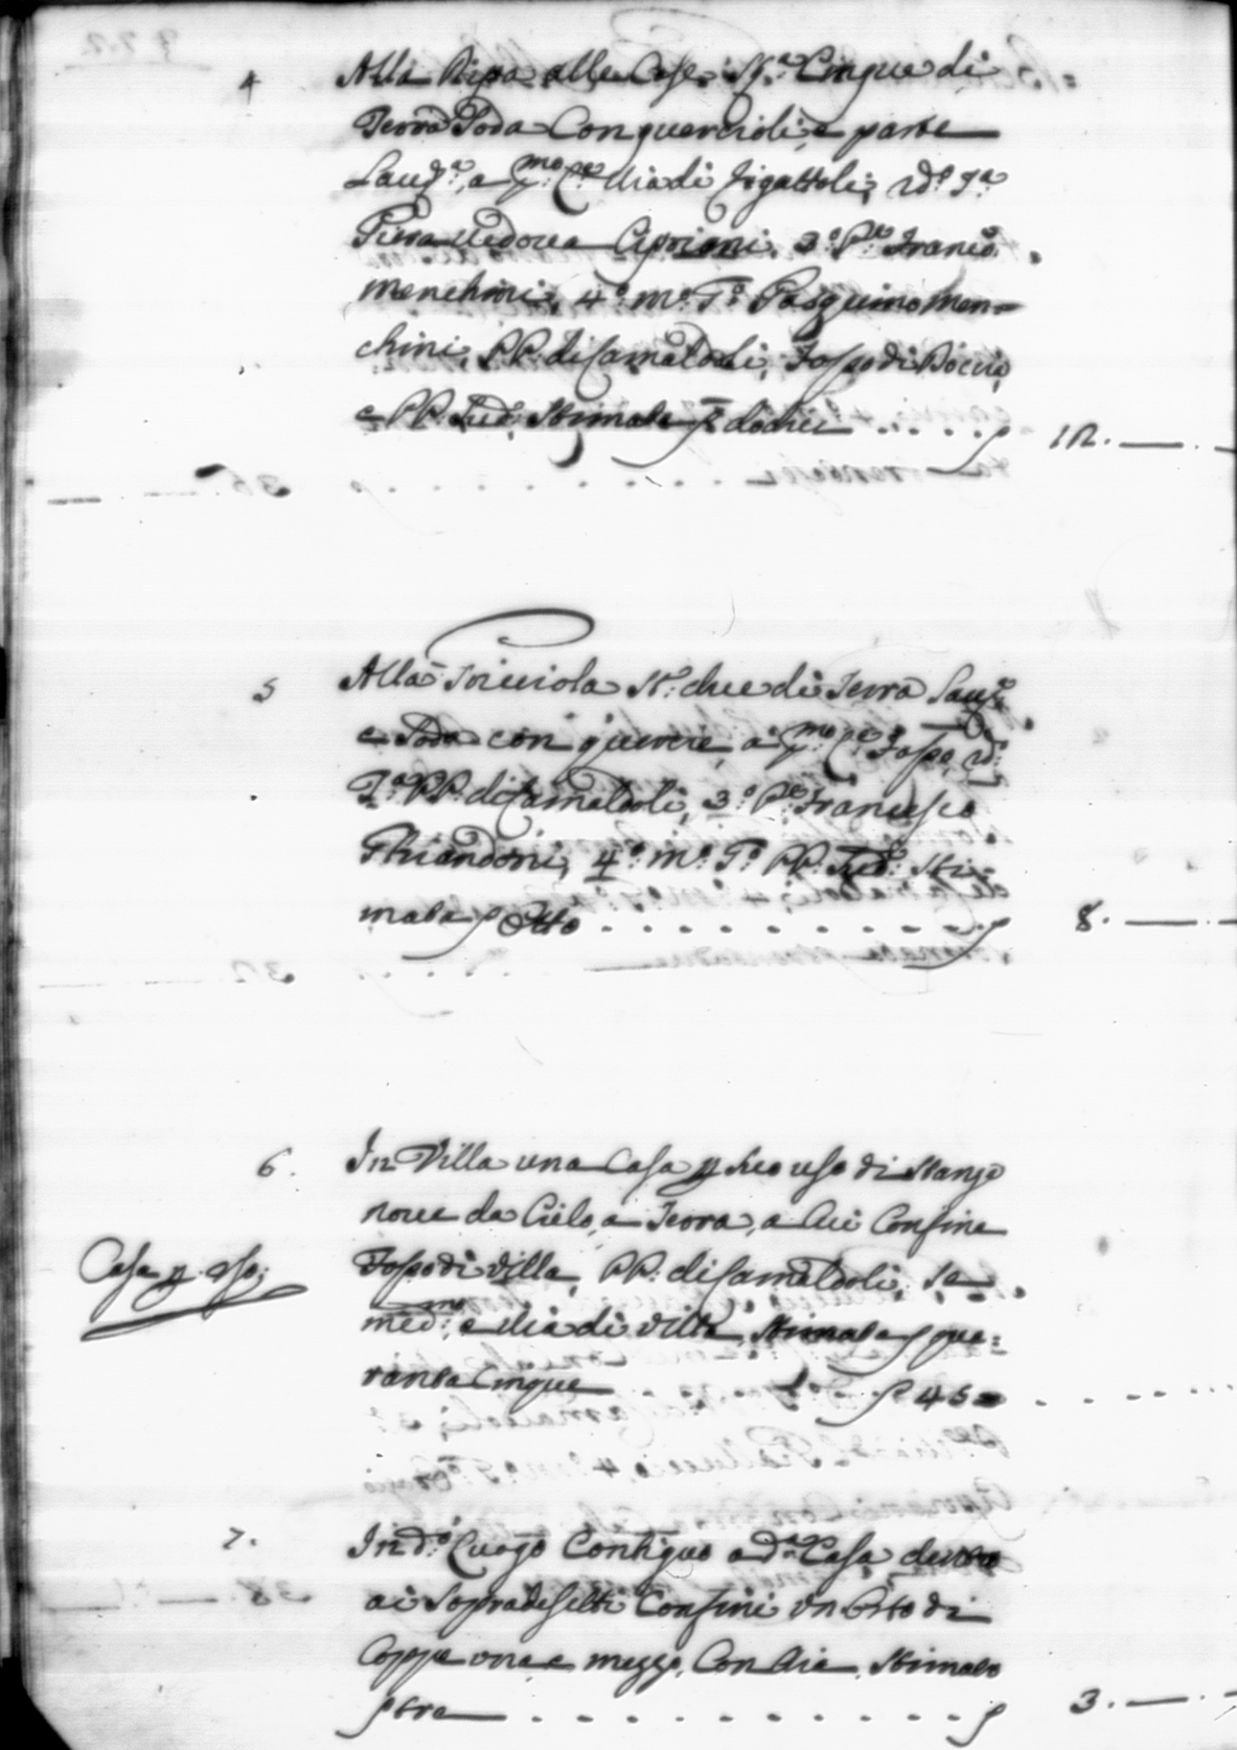 4 Alla Ripa alle Case St.ᵃ Cinque di
Terra Soda Con quercioli, e parte
Lauᵃ, a p.ᵐᵒ C.ᵉ Via di
Piera Vedova Cipriani, 3.º P.ᵉ Franc.º
Menchini, 4.º m.º T.º Pasquino Men=
chini, PP. di Camaldoli, Fosso di Boccio,
e PP. Sud.ⁱ Stimata dodici . . . . . 12. —
5 Alla Torricciola St.ᵃ due di Terra Lauᵃ
e Soda con quercie, a p.ᵐᵒ C.ᵉ Fosso,
2.º PP. di Camaldoli, 3.º P.ᵉ Francesco
Ghiandoni, 4.º m.º T.º PP. Sud.ⁱ Sti=
mata Otto . . . . . . . . . . 8. —
6. In Villa una Casa p suo uso di Stanze
noue da Cielo, a Terra, a Cui Confina
Fosso di Villa, PP. di Camaldoli,
med.ᵐⁱ e Via di Villa, Stimata qua=
ranta Cinque . . . 45
Casa p. uso;
7. In d.º Luogo Contiguo a d.ᵃ Casa, dentro
ai Sopradescritti Confini un Orto di
Coppe una e mezzo, Con Aia, Stimato
tre . . . . . . . . . . . 3. —